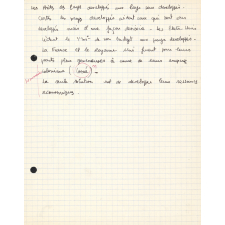 Les prêts de pays développés aux pays sous développés.
Cette les pays développés aident ceux qui sont sous
développés mais d'une façon dérisoire. Les Etats Unis
vident le de son budget aux pays développés.
La France et le Royaume Uni furent pour leurs
prêts plus généreuses à cause de leurs empires
coloniaux
La seule solution est de développer leurs ressources
économiques.